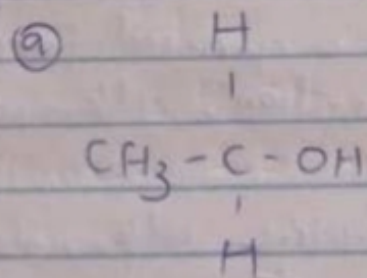 ⓐ H
|
CH₃ - C - OH
|
H